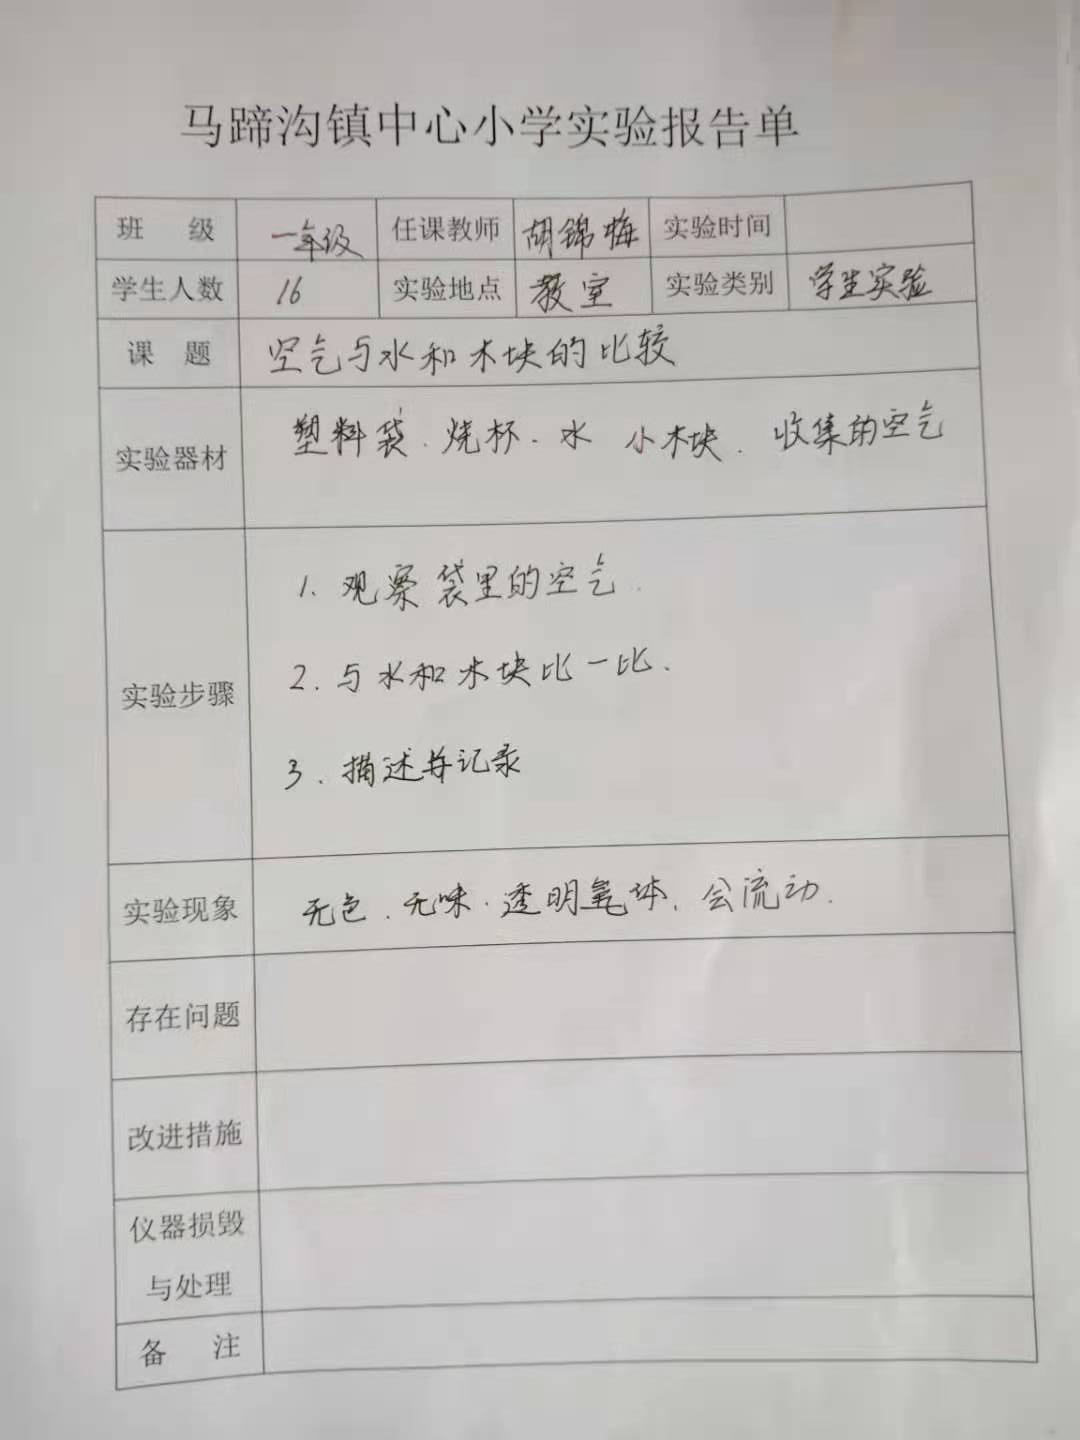 马蹄沟镇中心小学实验报告单
班 级 一年级 任课教师 胡锦梅 实验时间
学生人数 16 实验地点 教室 实验类别 学生实验
课 题 空气与水和木块的比较
实验器材 塑料袋、烧杯、水 小木块、收集的空气
实验步骤
1. 观察袋里的空气.
2. 与水和木块比一比.
3. 描述并记录
实验现象 无色、无味、透明气体、会流动.
存在问题
改进措施
仪器损毁
与处理
备 注